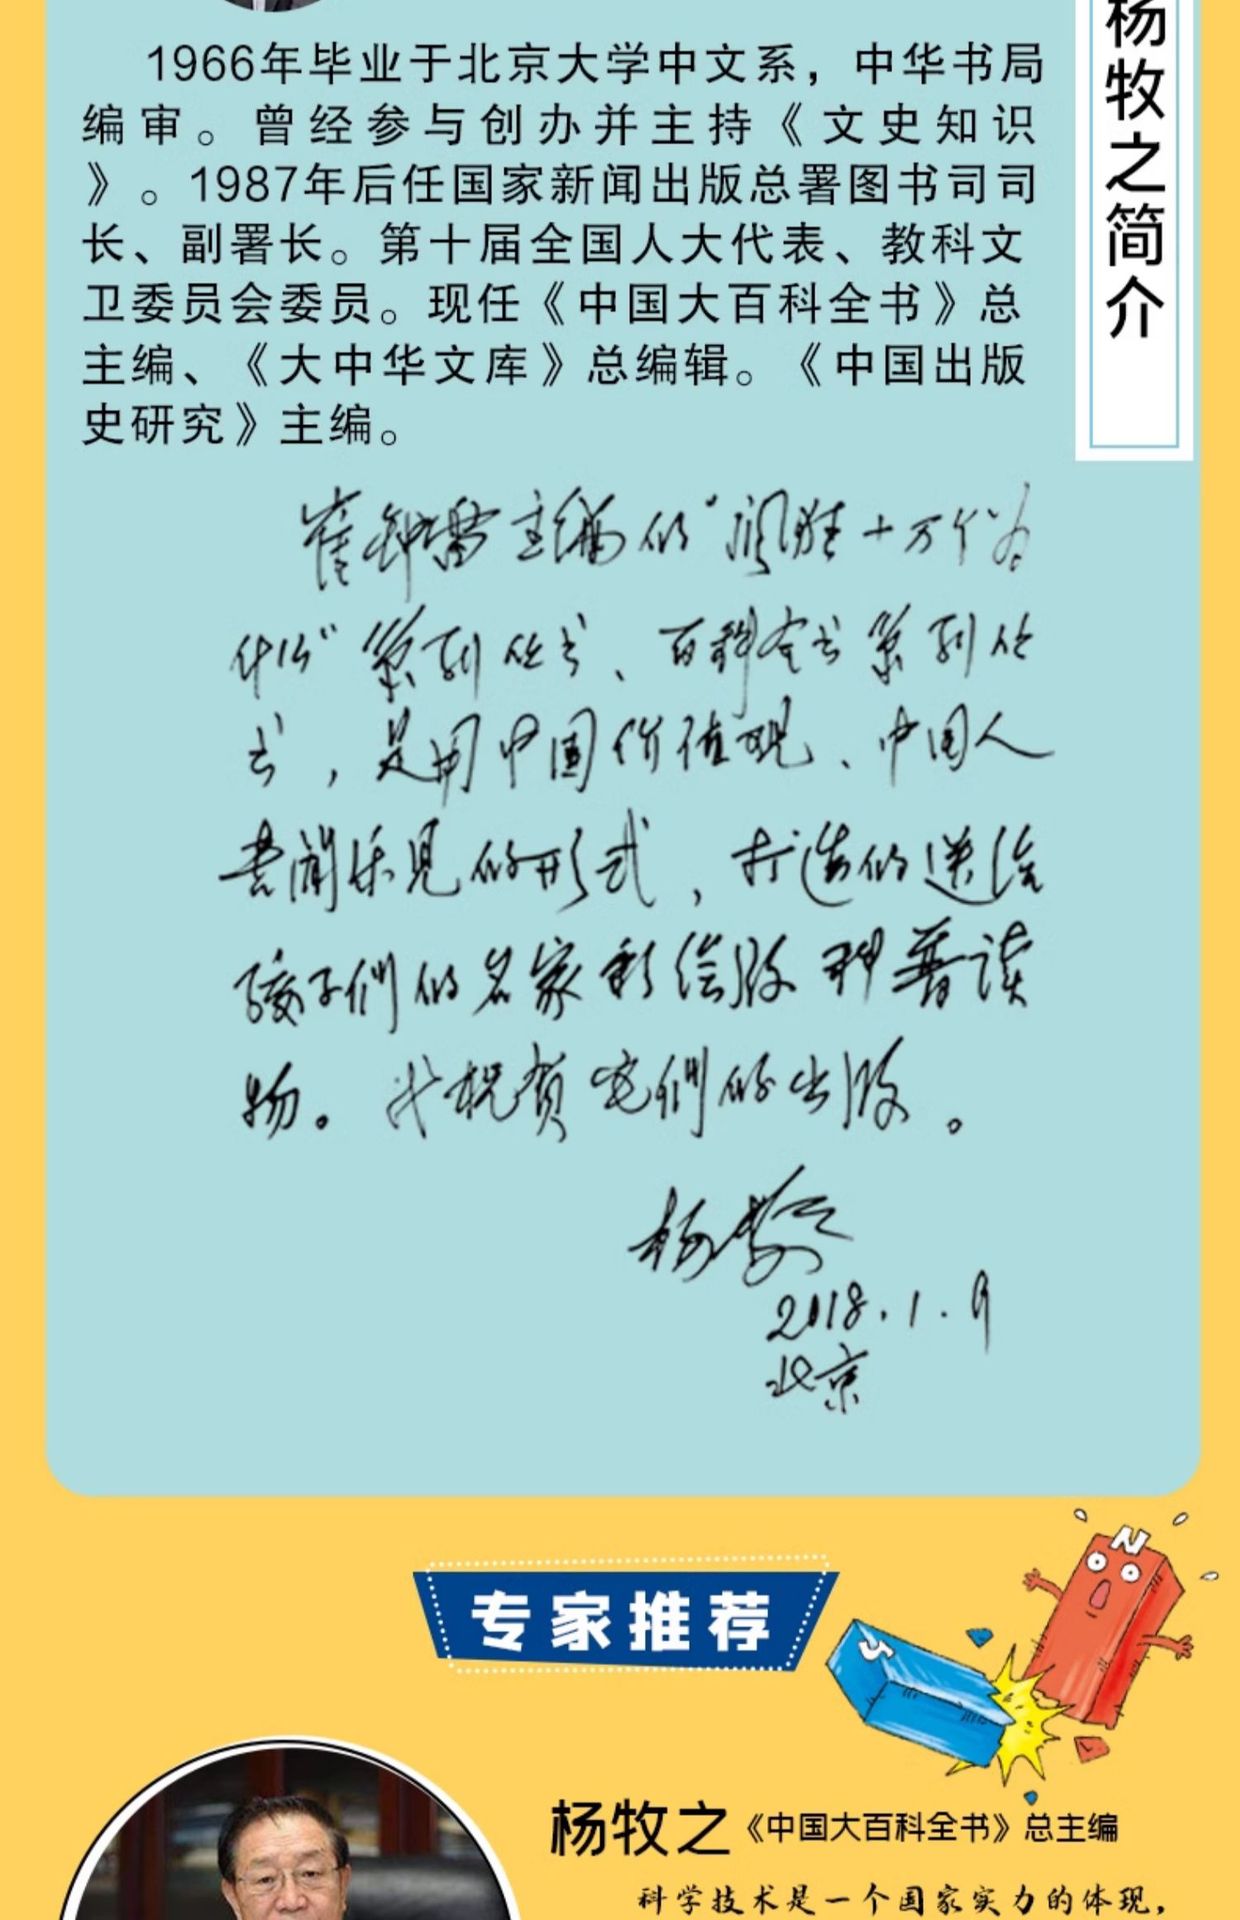 杨牧之简介
1966年毕业于北京大学中文系，中华书局
编审。曾经参与创办并主持《文史知识
》。1987年后任国家新闻出版总署图书司司
长、副署长。第十届全国人大代表、教科文
卫委员会委员。现任《中国大百科全书》总
主编、《大中华文库》总编辑。《中国出版
史研究》主编。
崔钟雷主编的“阅胜十万个为
什么”系列丛书、百科全书系列丛
书，是用中国价值观、中国人
喜闻乐见的形式，打造的送给
孩子们的名家彩绘版科普读
物。我祝贺它们的出版。
杨牧之
2018.1.9
北京
N
S
专家推荐
杨牧之《中国大百科全书》总主编
科学技术是一个国家实力的体现，